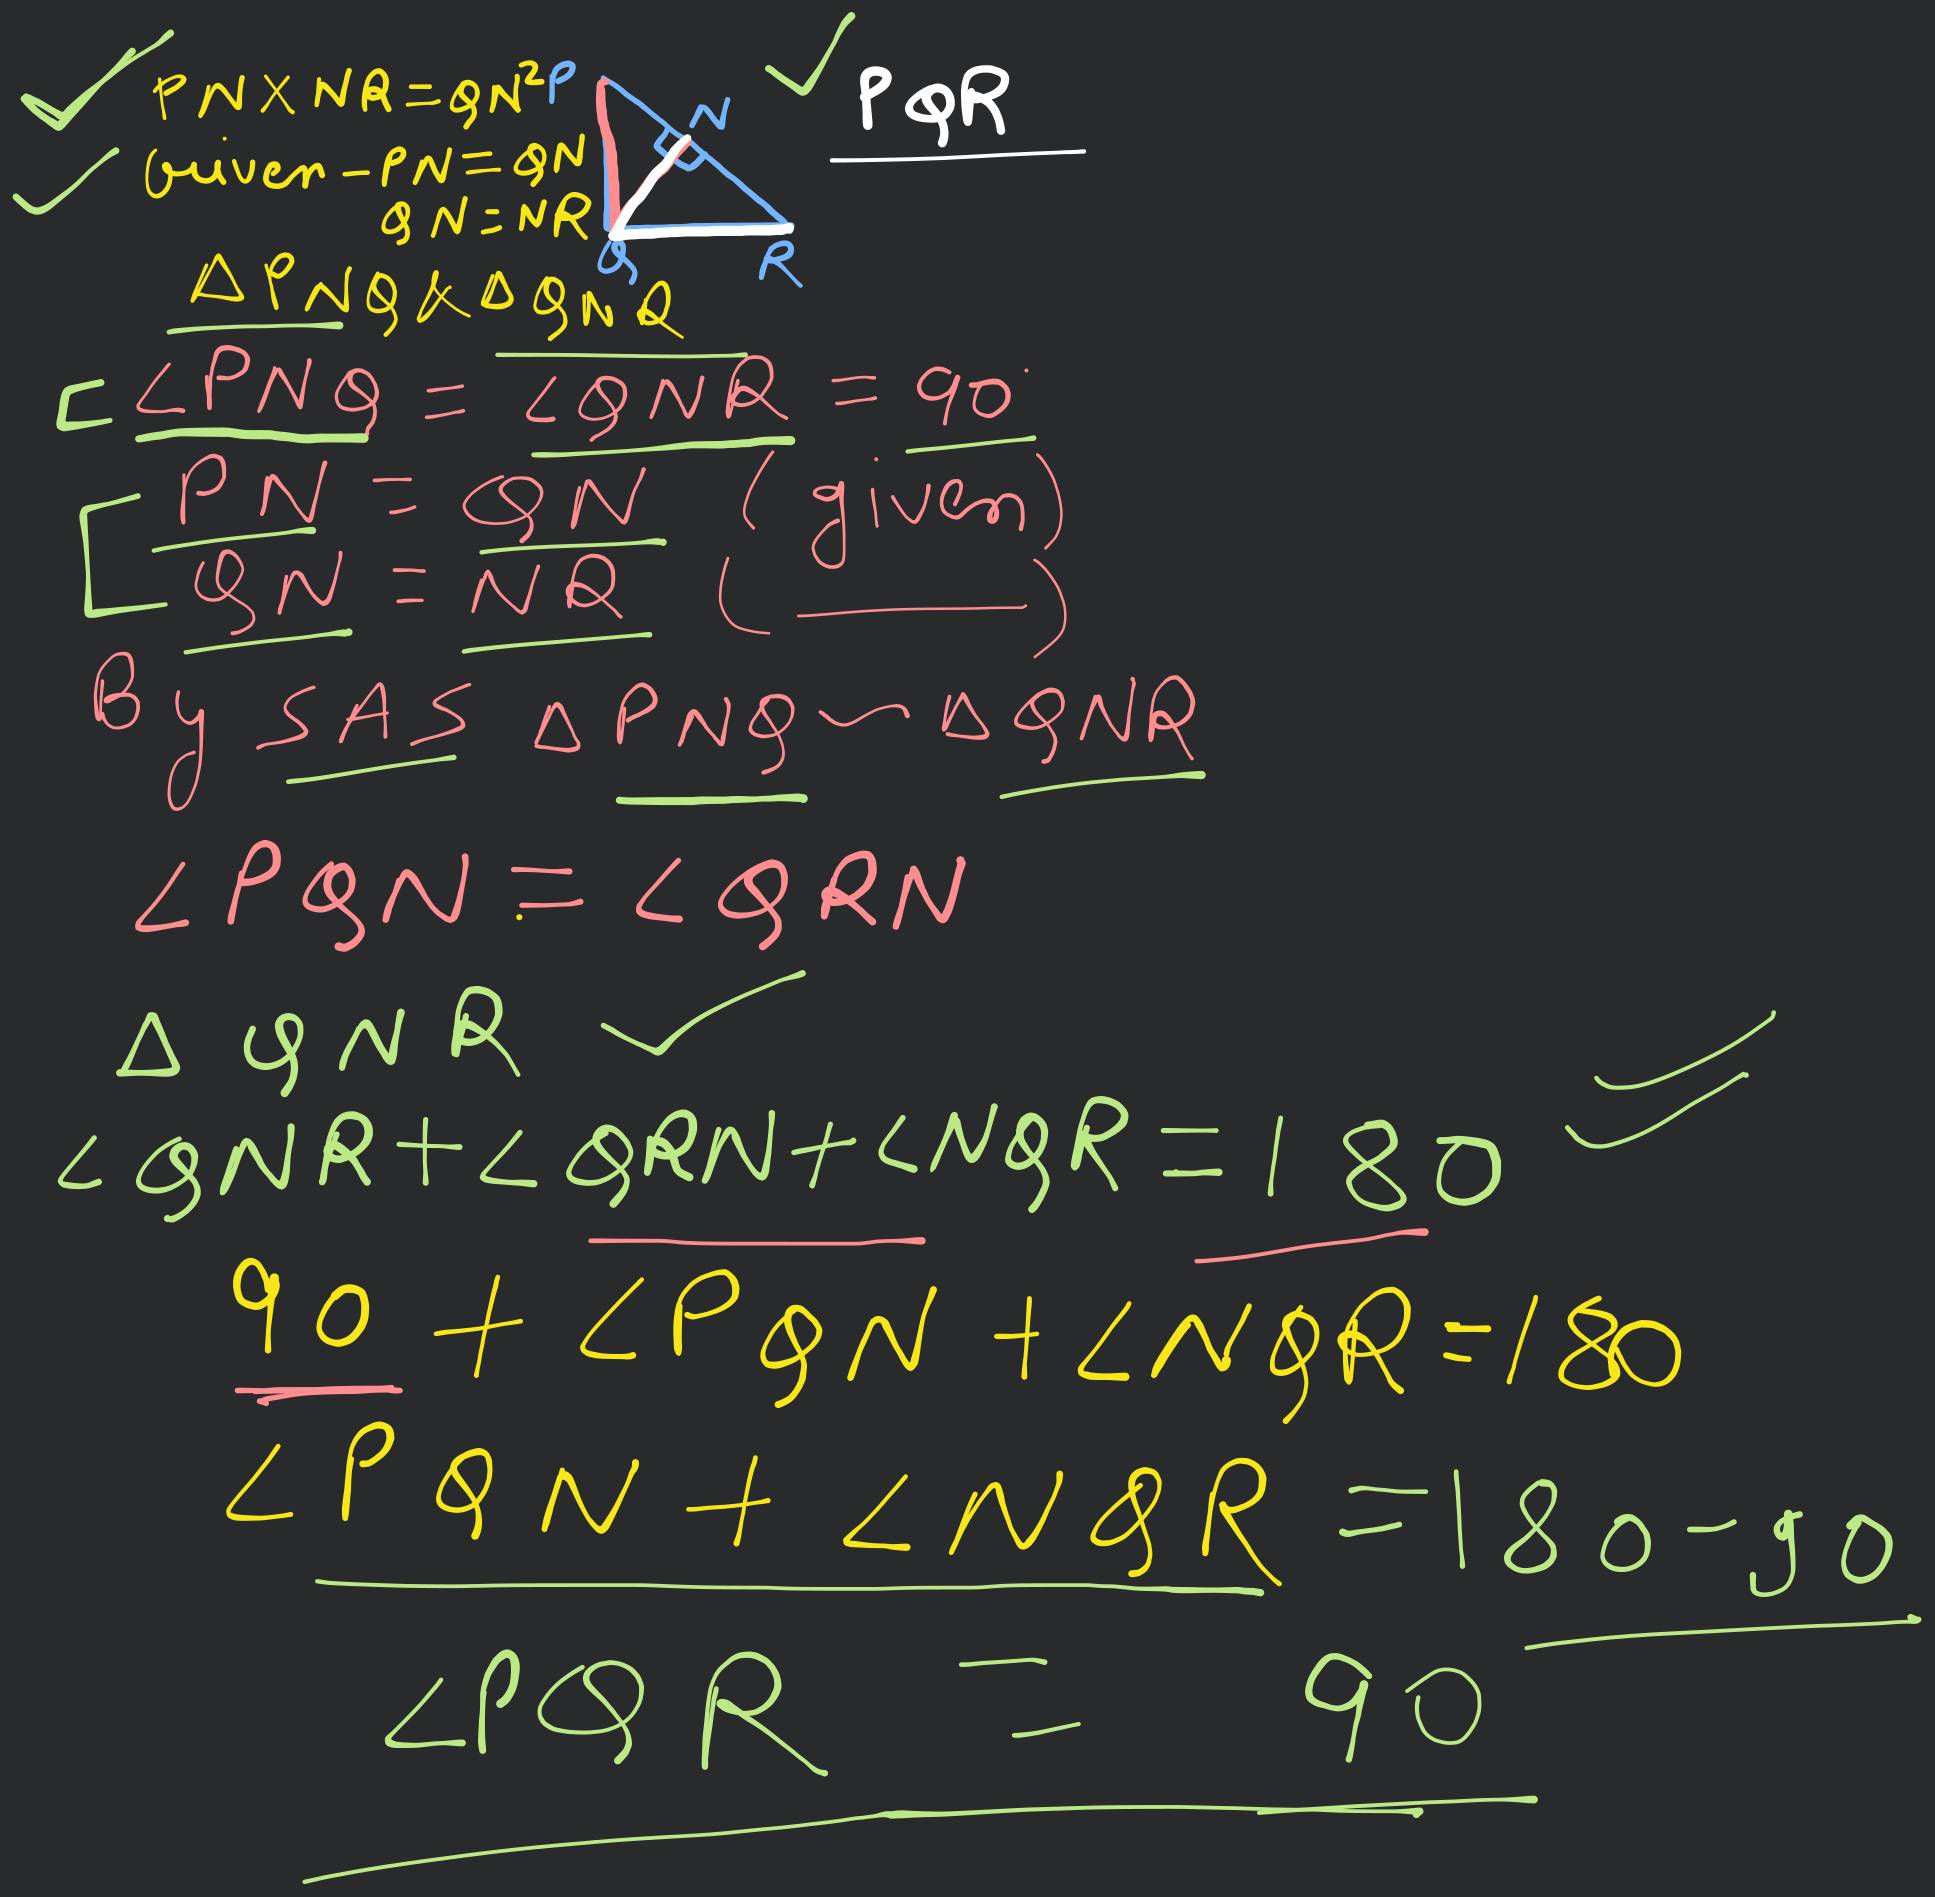 PN X NR = QN²
P
N
PQR
Given - PN = QN
QN = NR
Q
R
Δ PNQ & Δ QNR
∠PNQ = ∠QNR = 90°
PN = QN (given)
QN = NR ( ——— )
By SAS Δ PNQ ~ Δ QNR
∠PQN = ∠QRN
Δ QNR
∠QNR + ∠QRN + ∠NQR = 180
90 + ∠PQN + ∠NQR = 180
∠PQN + ∠NQR = 180 - 90
∠PQR = 90